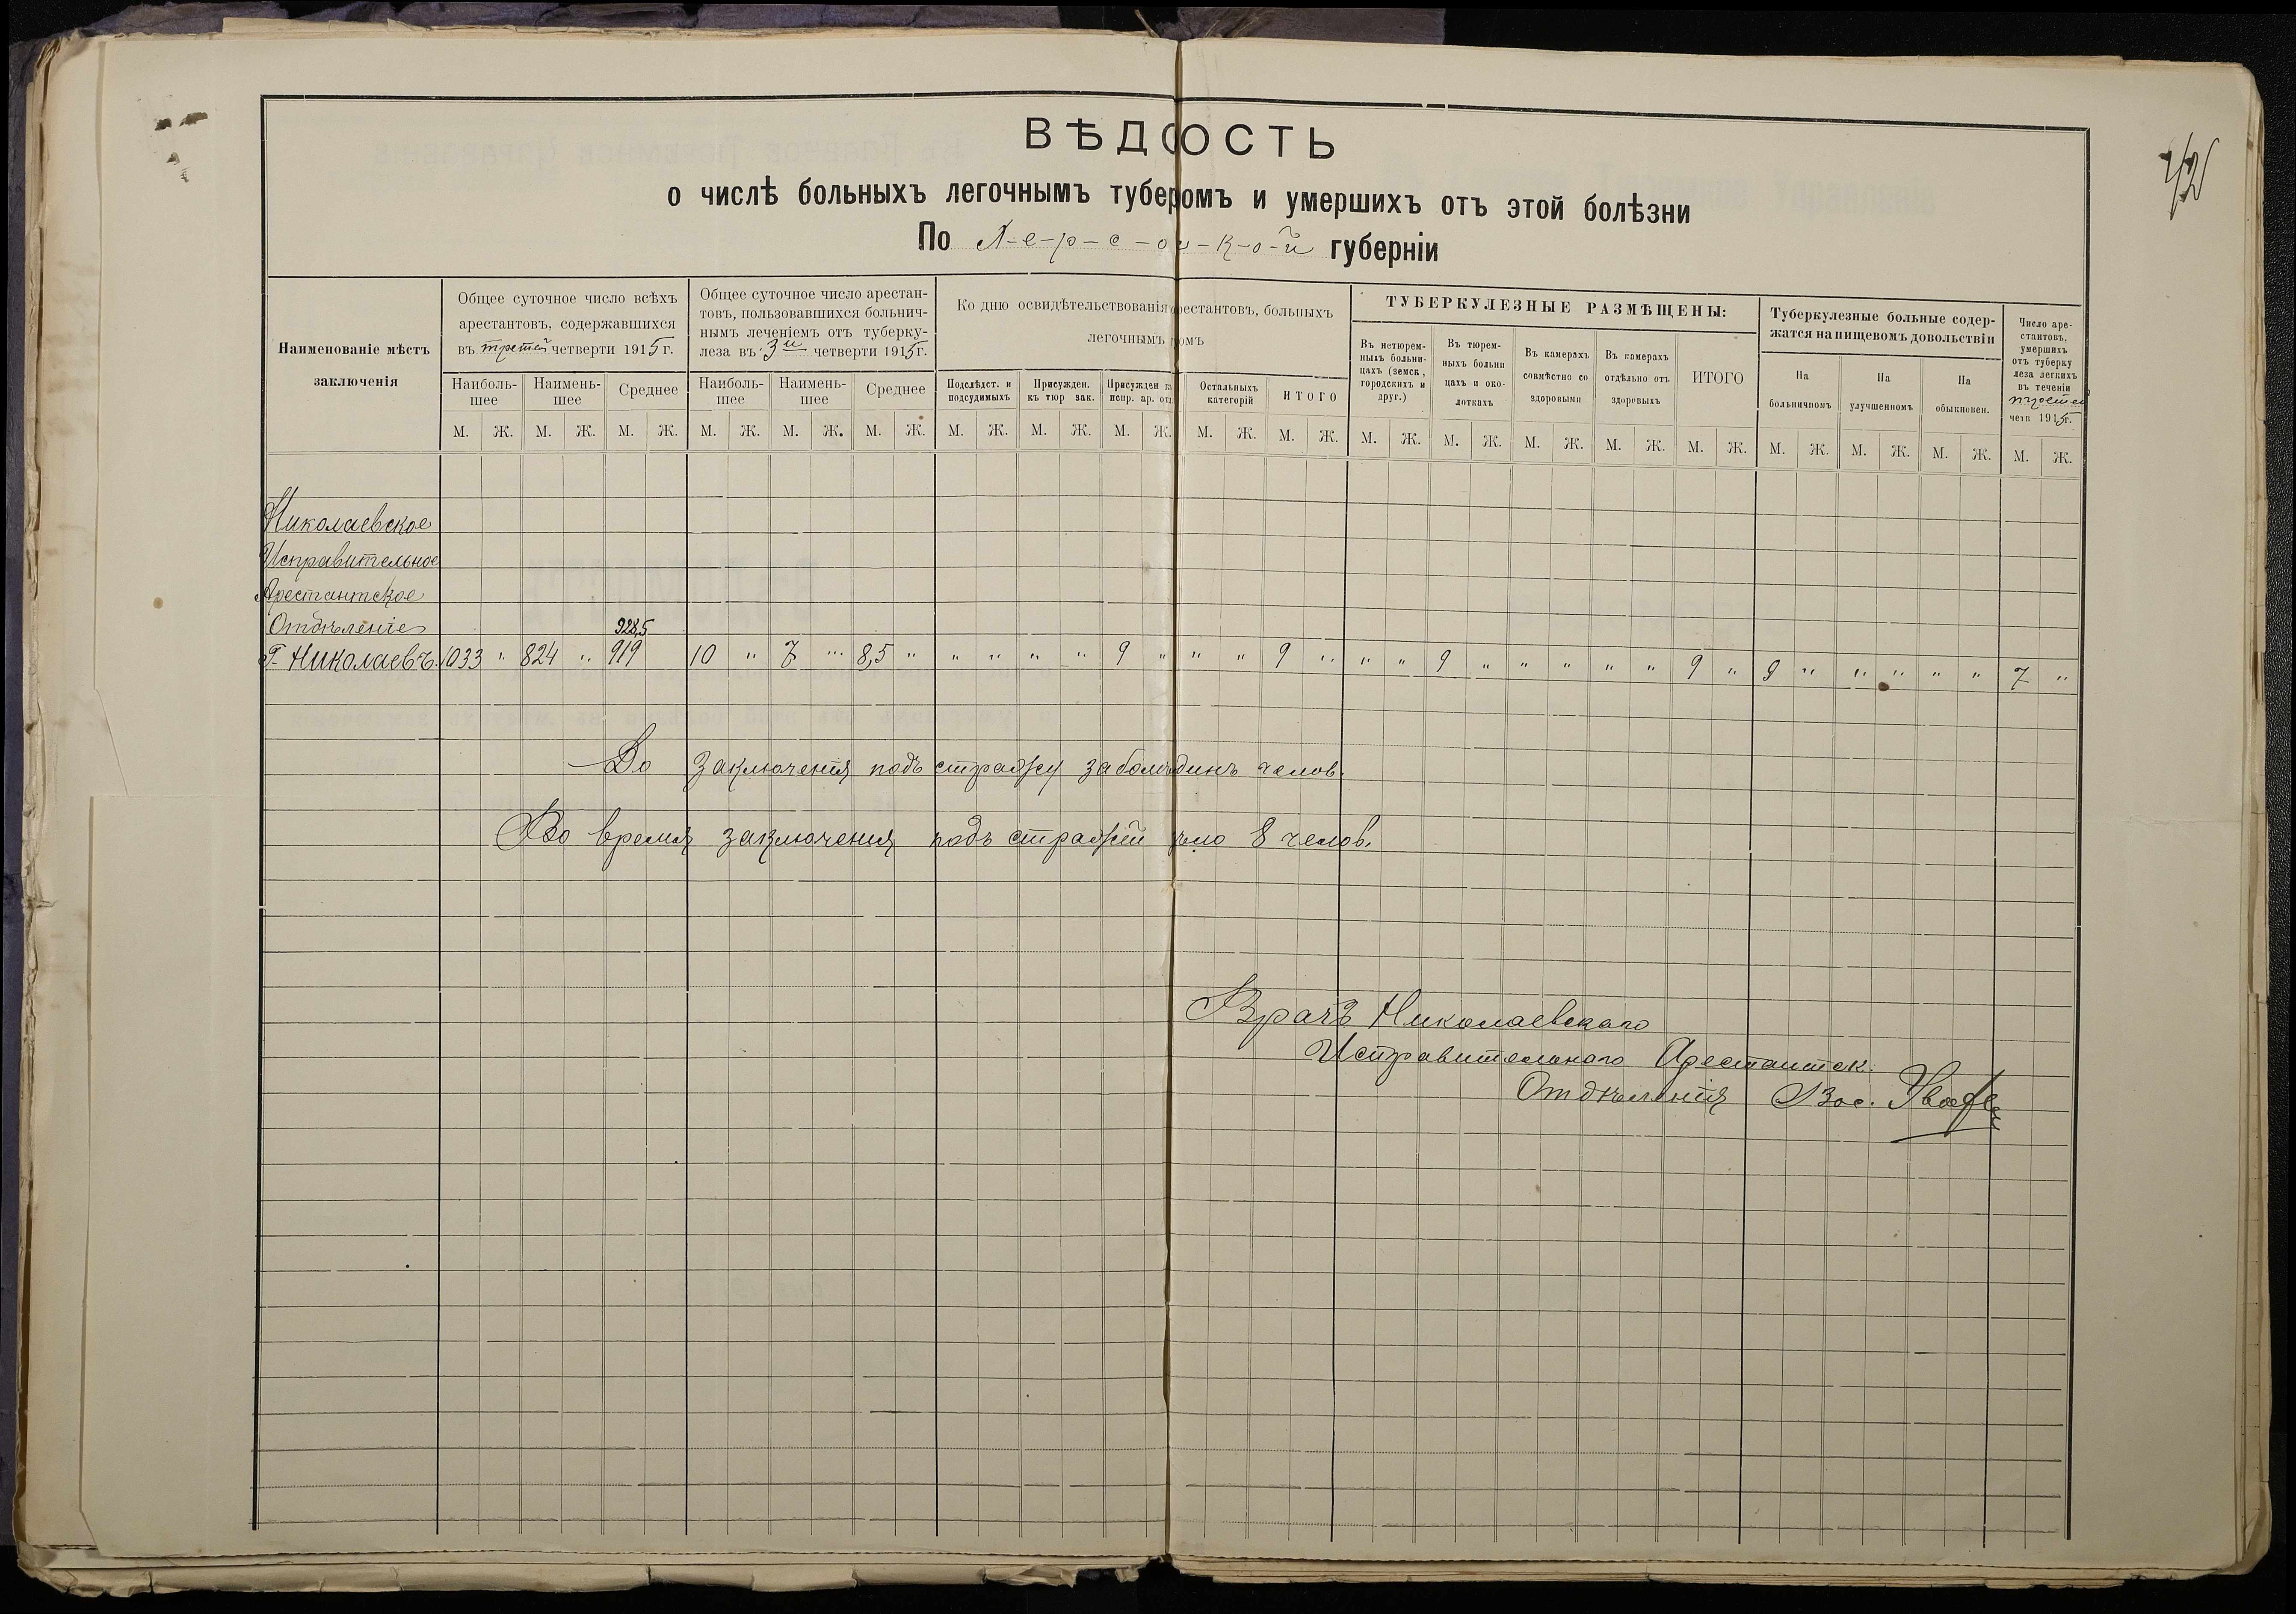 42
ВѢДОСТЬ
о числѣ больныхъ легочнымъ туберомъ и умершихъ отъ этой болѣзни
По Х-е-р-с-он-к-о-й губерніи
Наименованіе мѣстъ
заключенія
Общее суточное число всѣхъ
арестантовъ, содержавшихся
въ третей четверти 1915 г.
Наиболь-
шее
Наимень-
шее
Среднее
Общее суточное число арестан-
товъ, пользовавшихся больнич-
нымъ леченіемъ отъ туберку-
леза въ 3й четверти 1915 г.
Наиболь-
шее
Наимень-
шее
Среднее
Ко дню освидѣтельствованія рестантовъ, больныхъ
легочнымъ омъ
Подслѣдст. и
подсудимыхъ
Присужден.
къ тюр зак.
Присужден къ
испр. ар. от
Остальныхъ
категорій
ИТОГО
ТУБЕРКУЛЕЗНЫЕ РАЗМѢЩЕНЫ:
Въ нетюрем-
ныхъ больни-
цахъ (земск,
городскихъ и
друг.)
Въ тюрем-
ныхъ больни
цахъ и око-
лоткахъ
Въ камерахъ
совмѣстно со
здоровыми
Въ камерахъ
отдѣльно отъ
здоровыхъ
ИТОГО
Туберкулезные больные содер-
жатся на пищевомъ довольствіи
На
больничномъ
На
улучшенномъ
На
обыкновен.
Число аре-
стантовъ,
умершихъ
отъ туберку
леза легкихъ
въ теченіи
третей
четв 1915 г.
М. Ж. М. Ж. М. Ж. М. Ж. М. Ж. М. Ж. М. Ж. М. Ж. М. Ж. М. Ж. М. Ж. М. Ж. М. Ж. М. Ж. М. Ж. М. Ж. М. Ж. М. Ж. М. Ж. М. Ж.
Николаевское
Исправительное
Арестантское
Отдѣленіе
928,5
Г. Николаевъ. 1033 " 824 " 919 10 " 7 " 8,5 " " " " " 9 " " " 9 " " " 9 " " " " " 9 " 9 " " " " " 7 "
До заключенія подъ стражу заболѣдинъ челов.
Во время заключенія подъ стражей ло 8 челов.
Врачъ Николаевскаго
Исправительнаго Арестантск.
Отдѣленія